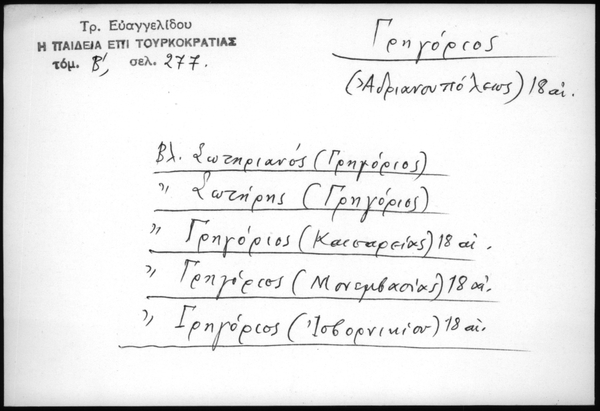 Τρ. Εὐαγγελίδου
Η ΠΑΙΔΕΙΑ ΕΠΙ ΤΟΥΡΚΟΚΡΑΤΙΑΣ
τόμ. Β', σελ. 277.
Γρηγόριος
(Ἀδριανουπόλεως) 18 αἰ.
Βλ. Σωτηριανός (Γρηγόριος)
" Σωτήρης (Γρηγόριος)
" Γρηγόριος (Καισαρείας) 18 αἰ.
" Γρηγόριος (Μονεμβασίας) 18 αἰ.
" Γρηγόριος (Ἰσβορνικίου) 18 αἰ.